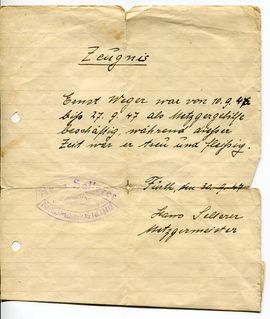 Zeugnis
Ernst Weger war von 10.9.47
biss 27.9.47 als Metzgergehilfe
beschäftig, während dieser
Zeit war er treu und fleissig.
Fürth, den 9.47
Hans Selterer
Metzgermeister
Hans Selterer